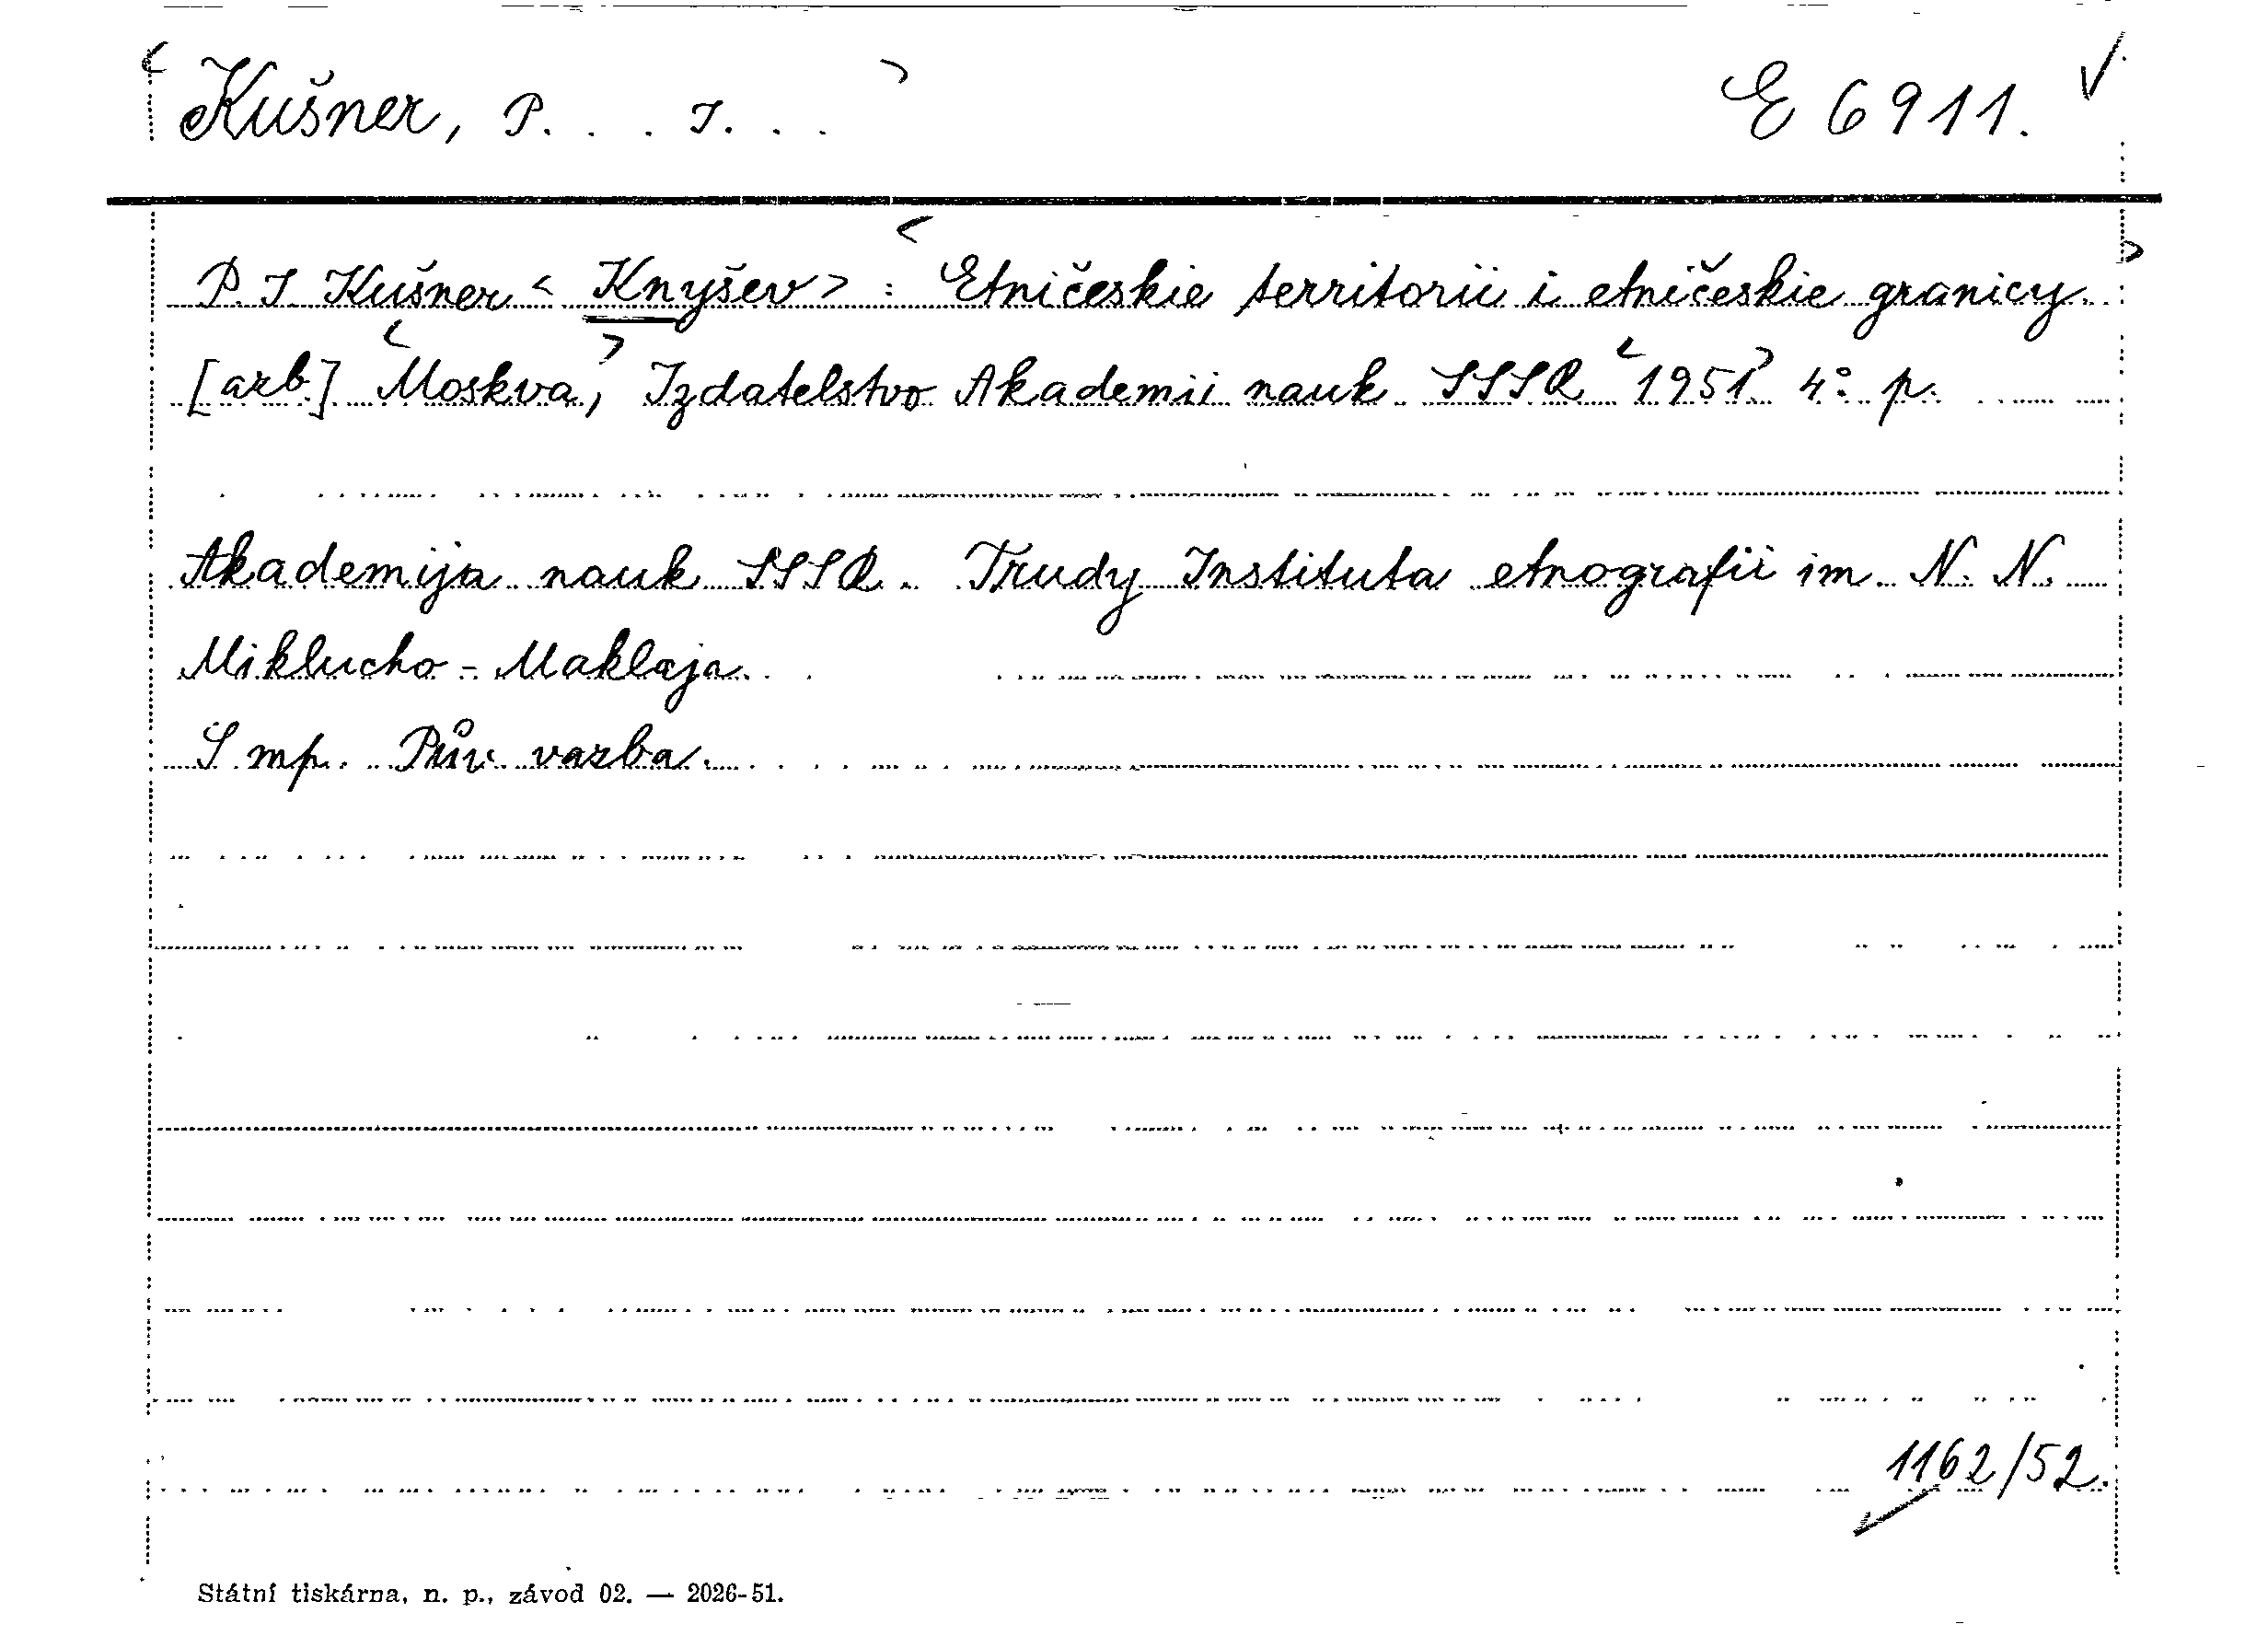 Kušner, P. . . I. . . E 6911.
P. I. Kušner < Knyšev > : Etničeskie territorii i etničeskie granicy.
[azb.] Moskva, Izdatelstvo Akademii nauk SSSR 1951. 4° p.
Akademija nauk SSSR. Trudy Instituta etnografii im. N. N.
Miklucho - Maklaja.
S mp. Pův. vazba.
1162/52.
Státní tiskárna, n. p., závod 02. — 2026-51.